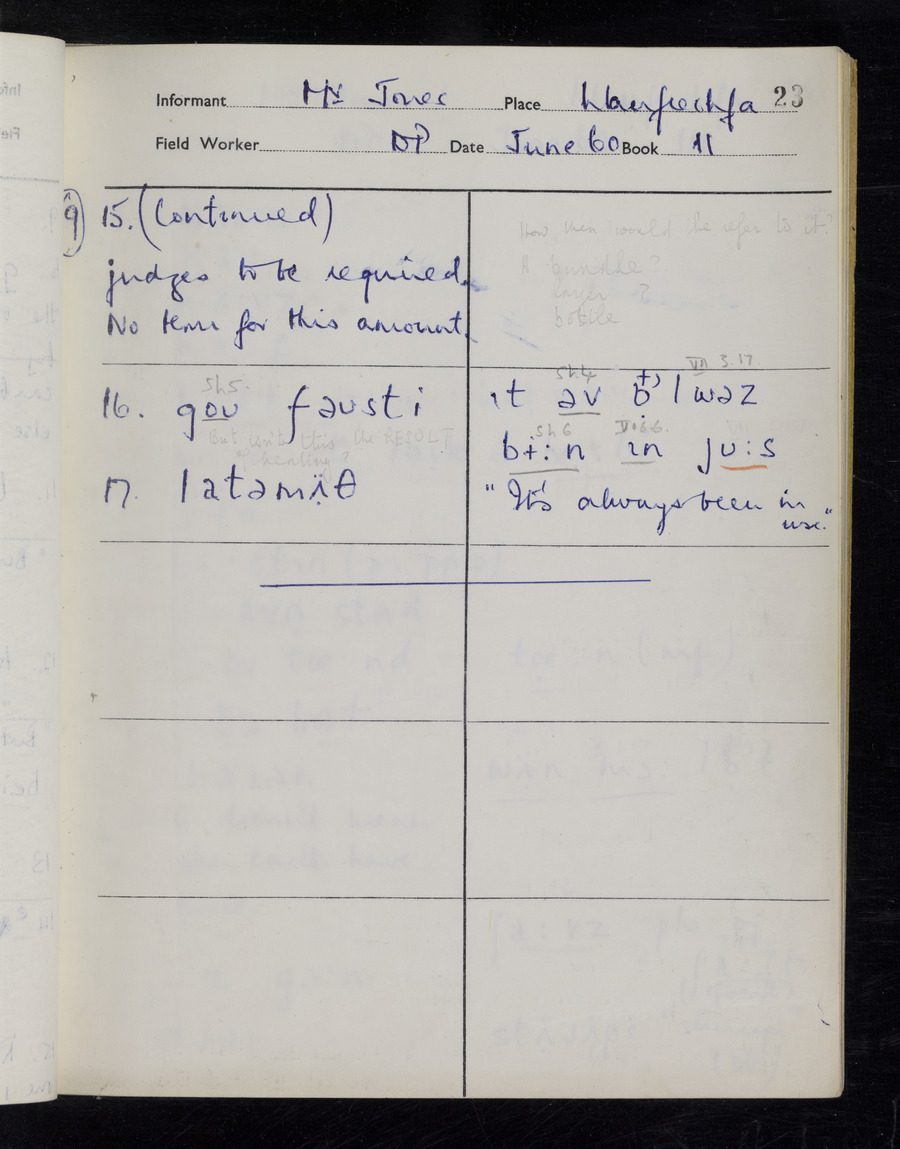 Informant Mr Jones Place Llanfrechfa 23
Field Worker DP Date June 60 Book 11
9) 15. (Continued)
judges to be required.
No term for this amount.
How then would he refer to it?
A bundle?
layer?
bottle
Sh5.
16. gɒʋ faʋsti
But isn't this the RESULT
of heating?
17. latəmïθ
Sh4 VII 3.17.
ɪt əv ɔ̈lwəz
Sh6
bɪ:n ɪn jʋ:s
"It's always been in
use."